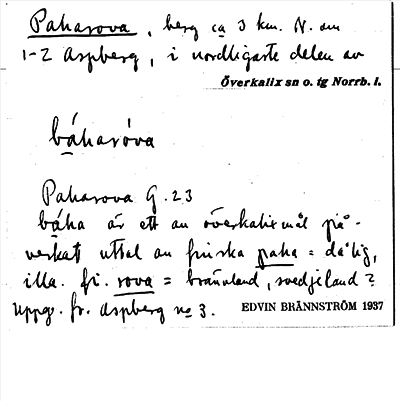 Paharova, berg ca 3 km. N. om
1-2 Aspberg, i nordligaste delen av
Överkalix sn o. tg Norrb. l.
báharòva
Paharova G. 23
báha är ett av överkalixmål på-
verkat uttal av finska paha = dålig,
illa. fi. rova = brännland, svedjeland?
Uppg. fr. Aspberg no 3.
EDVIN BRÄNNSTRÖM 1937